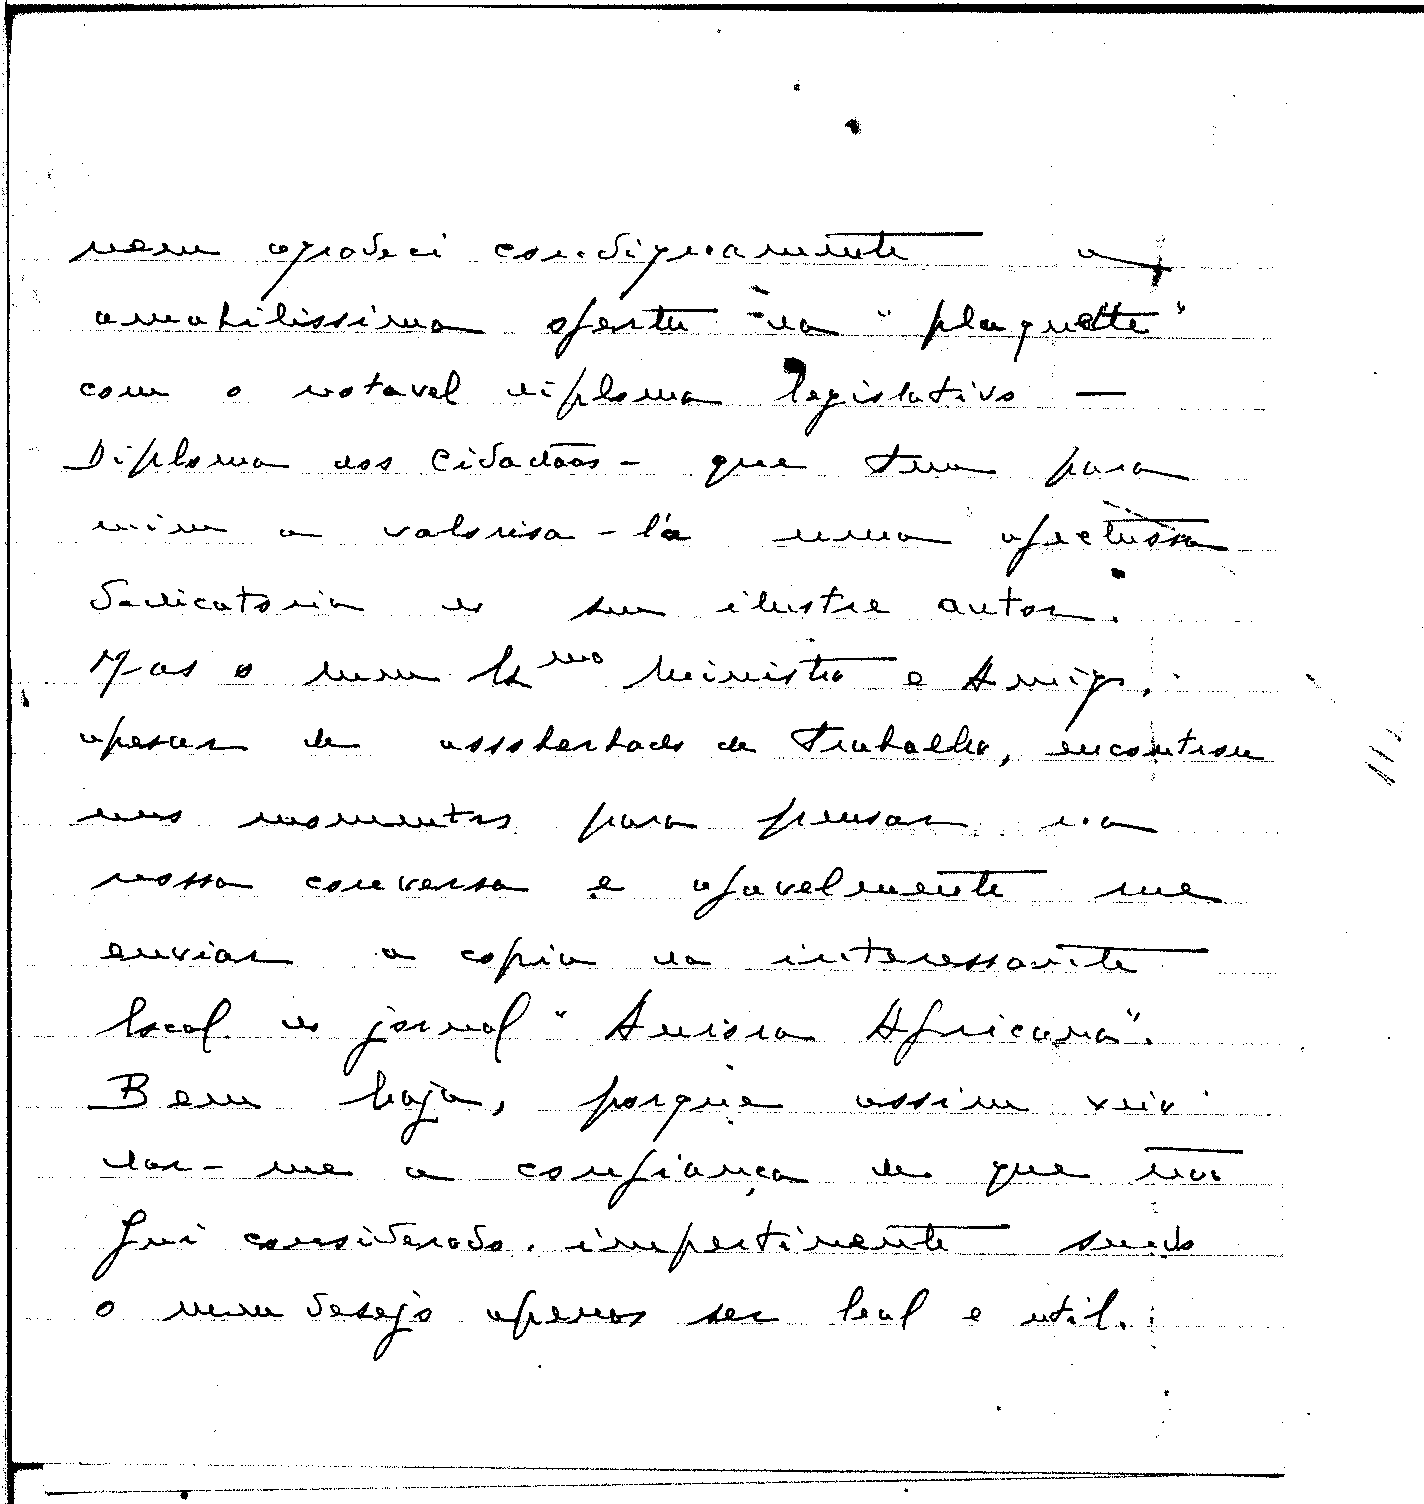 nem agradeci condignamente a
amabilissima oferta da "plaquette"
com o notavel diploma legislativo —
Diploma dos Cidadãos - que tem para
mim a valorisa-la uma afectuosa
dedicatoria do seu ilustre autor.
Mas o meu Exmo Ministro e Amigo,
apesar de assoberbado de trabalho, encontrou
uns momentos para pensar na
nossa conversa e afavelmente me
enviar a copia da interessante
local do jornal "Aurora Africana".
Bem haja, porque assim veio
dar-me a confiança de que não
fui considerado impertinente sendo
o meu desejo apenas ser leal e util.